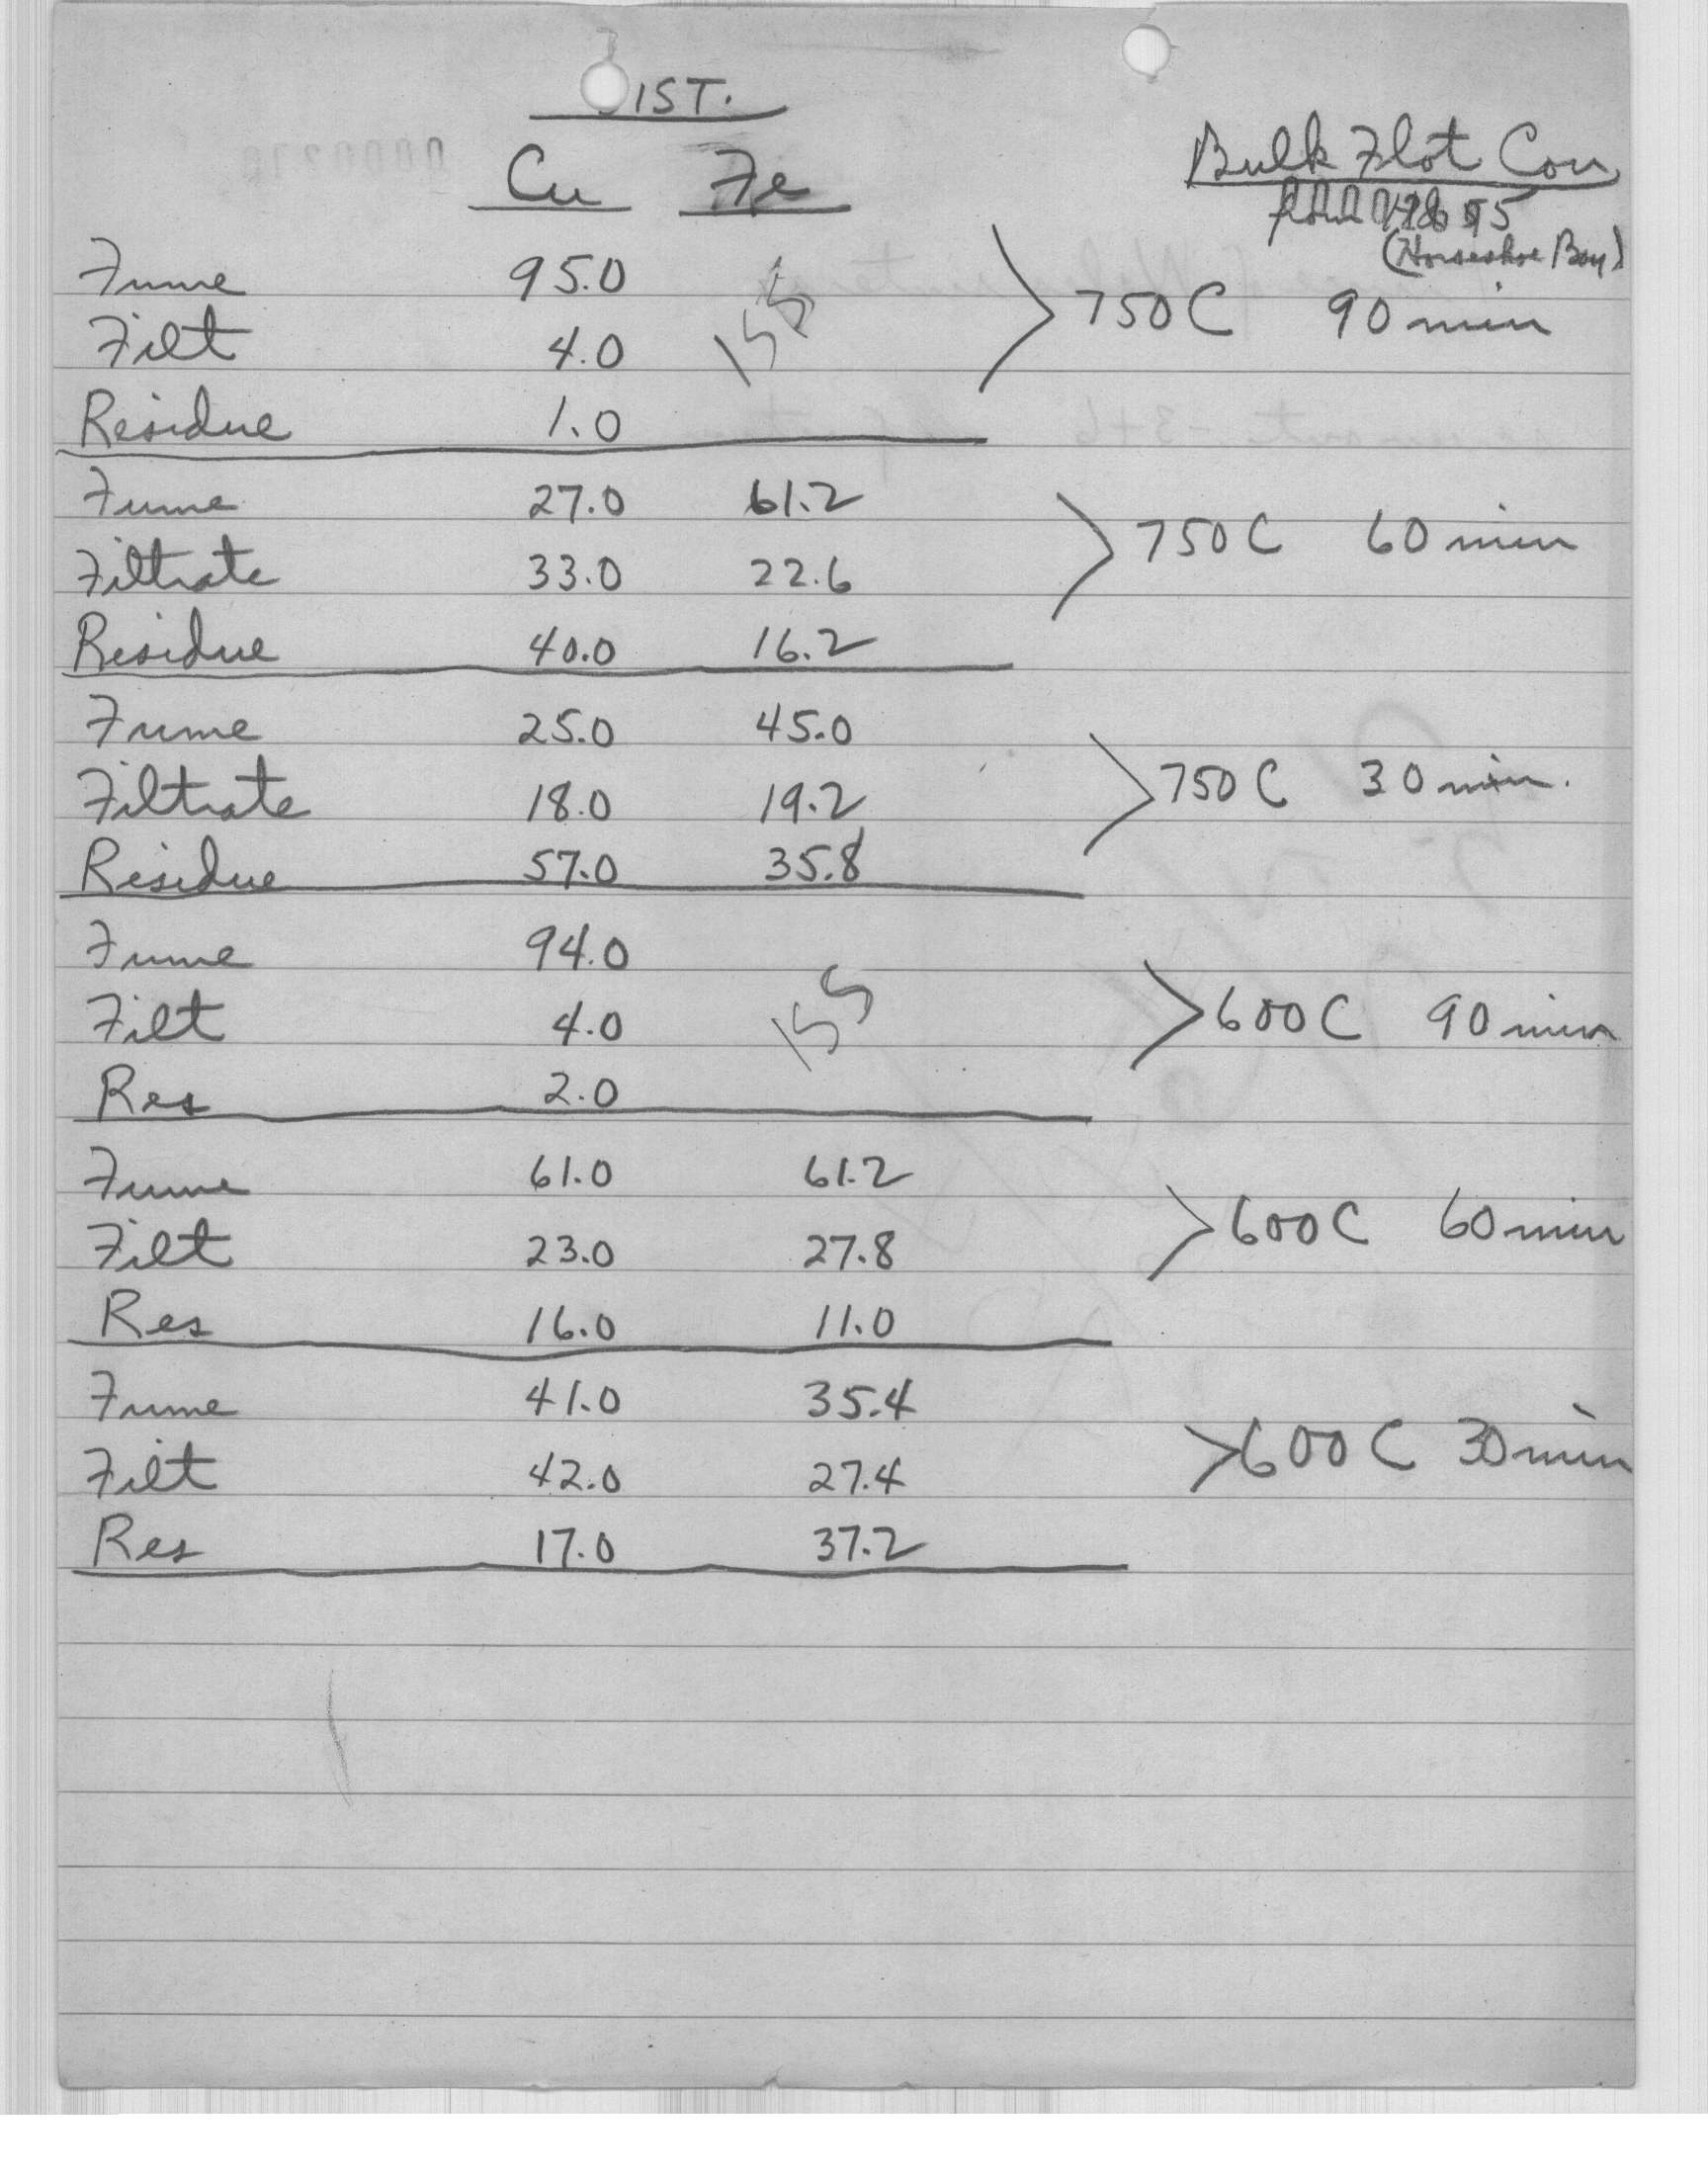 DIST.
Cu Fe
Bulk Flot Con
(Horseshoe Bay)
Fume 95.0
Filt 4.0
Residue 1.0
ISS
750C 90 min
Fume 27.0 61.2
Filtrate 33.0 22.6
Residue 40.0 16.2
750C 60 min
Fume 25.0 45.0
Filtrate 18.0 19.2
Residue 57.0 35.8
750C 30 min.
Fume 94.0
Filt 4.0
Res 2.0
ISS
600C 90 min
Fume 61.0 61.2
Filt 23.0 27.8
Res 16.0 11.0
600C 60 min
Fume 41.0 35.4
Filt 42.0 27.4
Res 17.0 37.2
600C 30 min